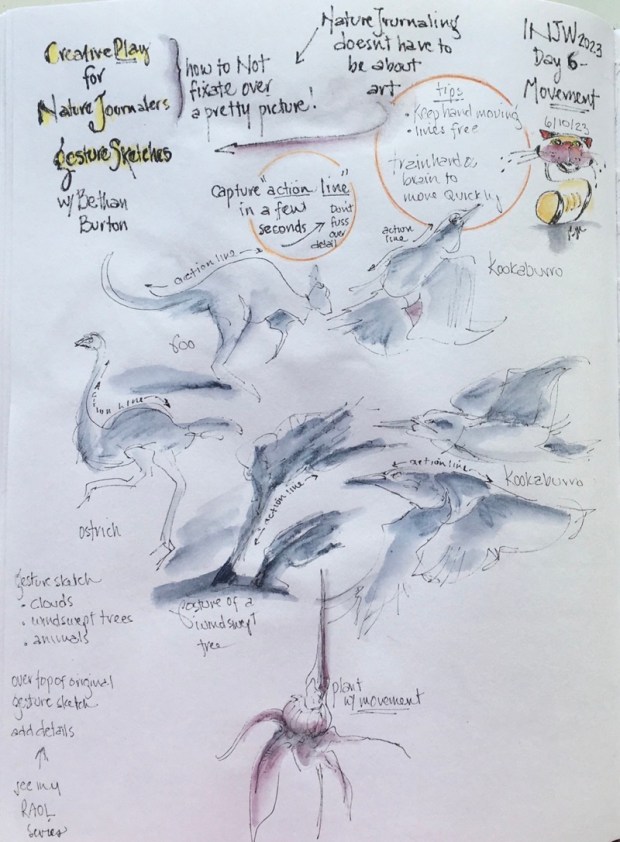 Creative Play
for
Nature Journalers
gesture sketches
w/ Bethan
Burton
how to Not
fixate over
a pretty picture!
Nature Journaling
doesn't have to
be about
art
INJW2023
Day 6-
Movement
6/10/23
tips
• Keep hand moving
• lines free
train hand &
brain to
move quickly
Capture "action line"
in a few
seconds
Don't
fuss
over
detail
action line
roo
action
line
Kookaburro
action line
ostrich
action line
posture of a
windswept
tree
action line
Kookaburro
gesture sketch
• clouds
• windswept trees
• animals
over top of original
gesture sketch
add details
see my
RAOL
series
plant
w/ movement